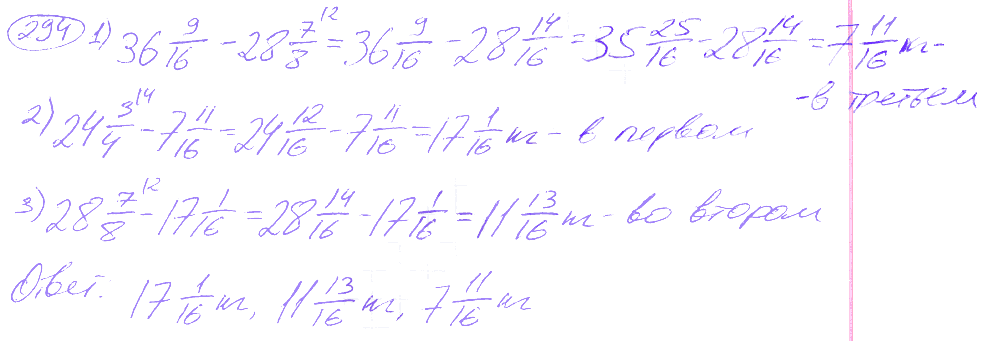 294 1) 36 9/16 - 28 7/8^12 = 36 9/16 - 28 14/16 = 35 25/16 - 28 14/16 = 7 11/16 кг -
- в третьем
2) 24 3/4^14 - 7 11/16 = 24 12/16 - 7 11/16 = 17 1/16 кг - в первом
3) 28 7/8^12 - 17 1/16 = 28 14/16 - 17 1/16 = 11 13/16 кг - во втором
Ответ: 17 1/16 кг, 11 13/16 кг, 7 11/16 кг